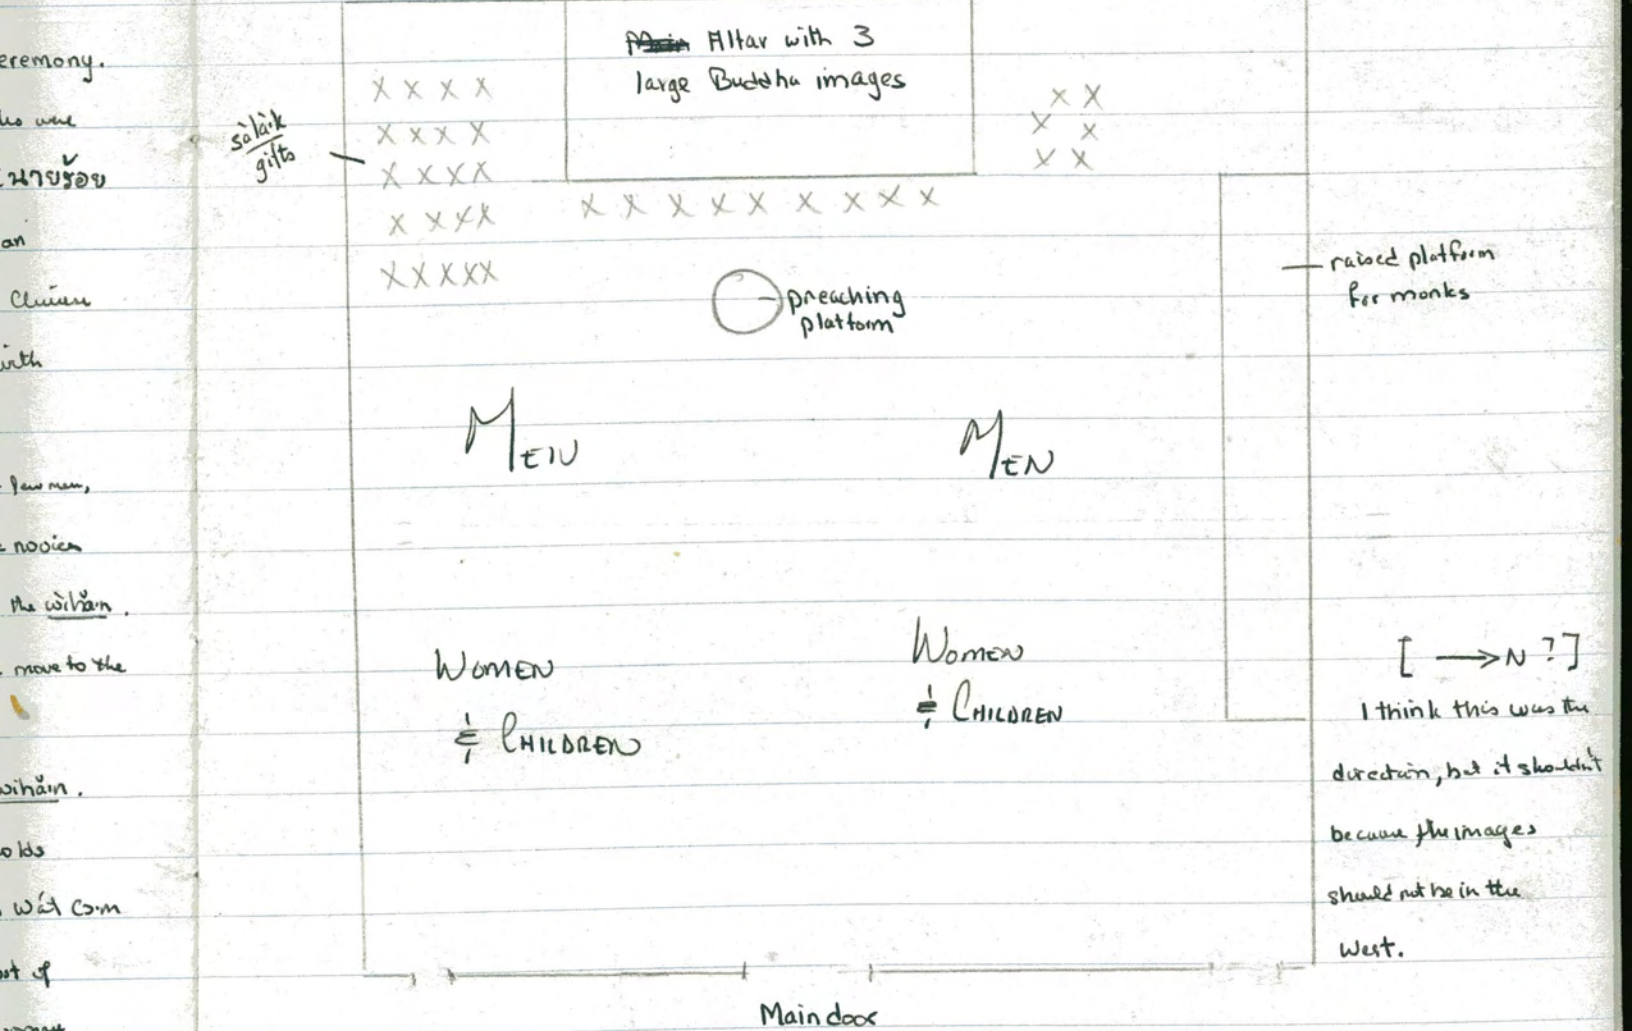 eremony.
ho were
นายร้อย
an
with
few men,
novices
the wìhǎn.
move to the
wihǎn.
olds
wát
ost of
Altar with 3
large Buddha images
X X X X
X X X X
X X X X
X X X X
X X X X X
sàlàːk
gifts
X X
X X
X X
X X X X X X X X X
preaching
platform
raised platform
for monks
MEN
MEN
WOMEN
& CHILDREN
WOMEN
& CHILDREN
[ → N ? ]
I think this was the
direction, but it shouldn't
because the images
should not be in the
West.
Main door